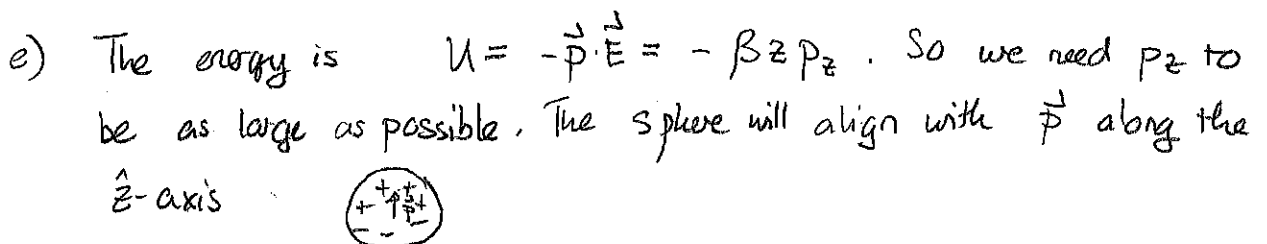 e) The energy is U = -p⃗·E⃗ = - βzp_z. So we need p_z to
be as large as possible. The sphere will align with p⃗ along the
ẑ-axis